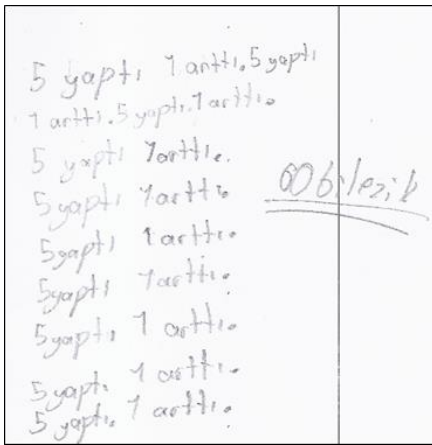 5 yaptı 1 arttı. 5 yaptı
1 arttı. 5 yaptı. 1 arttı.
5 yaptı 1 arttı.
5 yaptı 1 arttı
60 bilezik
5 yaptı 1 arttı.
5 yaptı 1 arttı.
5 yaptı 1 arttı.
5 yaptı. 1 arttı.
5 yaptı. 1 arttı.